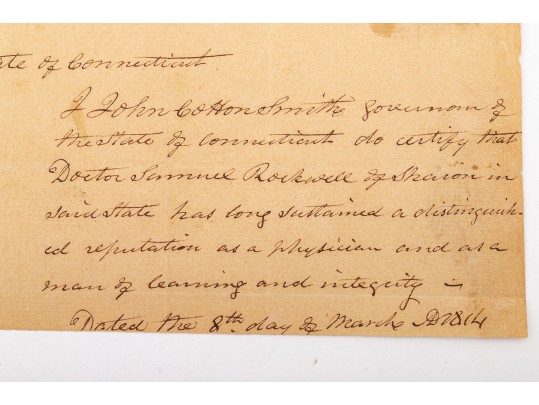 ate of Connecticut.
I John Cotton Smith governour of
the State of Connecticut do certify that
Doctor Samuel Rockwell of Sharon in
said State has long sustained a distinguish-
ed reputation as a physician and as a
man of learning and integrity –
Dated the 8th day of March AD 1814